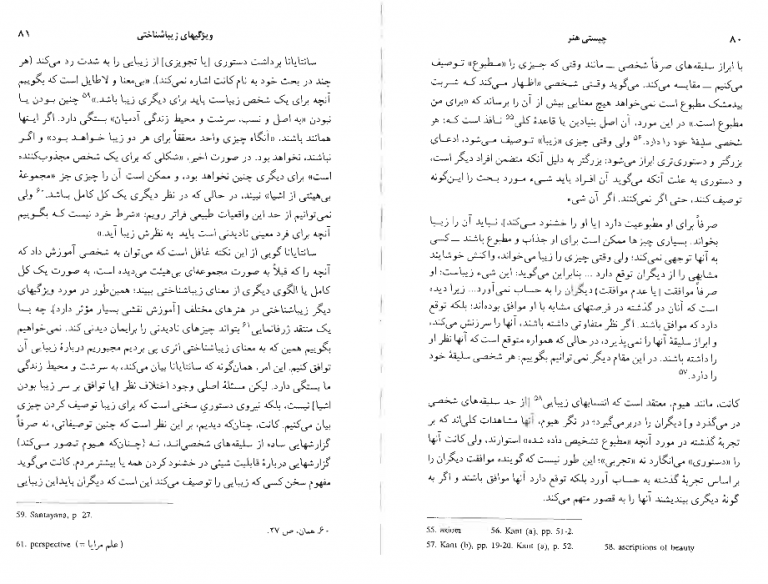 ۸۰
چیستی هنر
با ابراز سلیقه‌های صرفاً شخصی ــ مانند وقتی که چیزی را «مطبوع» توصیف
می‌کنیم ــ مقایسه می‌کند. می‌گوید وقتی شخصی «اظهار می‌کند که شربت
بیدمشک مطبوع است نمی‌خواهد هیچ معنایی بیش از آن را برساند که «برای من
مطبوع است.» در این مورد، آن اصل بنیادین یا قاعدهٔ کلی۵۵ نافذ است که: هر
شخصی سلیقهٔ خود را دارد.۵۶ ولی وقتی چیزی «زیبا» توصیف می‌شود، ادعای
بزرگتر و دستوری‌تری ابراز می‌شود: بزرگتر به دلیل آنکه متضمن افراد دیگر است،
و دستوری به علت آنکه می‌گوید آن افراد باید شیء مورد بحث را این‌گونه
توصیف کنند، حتی اگر نمی‌کنند. اگر آن شیء
صرفاً برای او مطبوعیت دارد [یا او را خشنود می‌کند]، نباید آن را زیبا
بخواند. بسیاری چیزها ممکن است برای او جذاب و مطبوع باشند ــ کسی
به آنها توجهی نمی‌کند؛ ولی وقتی چیزی را زیبا می‌خواند، واکنش خوشایند
مشابهی را از دیگران توقع دارد ... بنابراین می‌گوید: این شیء زیباست؛ او
صرفاً موافقت [یا عدم موافقت] دیگران را به حساب نمی‌آورد... زیرا دیده
است که آنان در گذشته در فرصتهای مشابه با او موافق بوده‌اند؛ بلکه توقع
دارد که موافق باشند. اگر نظر متفاوتی داشته باشند، آنها را سرزنش می‌کند،
و ابراز سلیقهٔ آنها را نمی‌پذیرد، در حالی که همواره متوقع است که آنها نظر او
را داشته باشند. در این مقام دیگر نمی‌توانیم بگوییم: هر شخصی سلیقهٔ خود
را دارد.۵۷
کانت، مانند هیوم، معتقد است که انتسابهای زیبایی۵۸ [از حد سلیقه‌های شخصی
در می‌گذرد و] دیگران را دربر می‌گیرد؛ در نگر هیوم، آنها مشاهدات کلی‌اند که بر
تجربهٔ گذشته در مورد آنچه «مطبوع تشخیص داده شده» استوارند، ولی کانت آنها
را «دستوری» می‌انگارد نه «تجربی»؛ این طور نیست که گوینده موافقت دیگران را
بر اساس تجربهٔ گذشته به حساب آورد بلکه توقع دارد آنها موافق باشند و اگر به
گونهٔ دیگری بیندیشند آنها را به قصور متهم می‌کند.
55. axiom 56. Kant (a), pp. 51-2.
57. Kant (b), pp. 19-20. Kant (a), p. 52. 58. ascriptions of beauty
ویژگیهای زیباشناختی
۸۱
سانتایانا برداشت دستوری [یا تجویزی] از زیبایی را به شدت رد می‌کند (هر
چند در بحث خود به نام کانت اشاره نمی‌کند). «بی‌معنا و لاطایل است که بگوییم
آنچه برای یک شخص زیباست باید برای دیگری زیبا باشد.»۵۹ چنین بودن یا
نبودن «به اصل و نسب، سرشت و محیط زندگی آدمیان» بستگی دارد. اگر اینها
همانند باشند، «آنگاه چیزی واحد محققاً برای هر دو زیبا خواهد بود» و اگر
نباشند، نخواهد بود. در صورت اخیر، «شکلی که برای یک شخص مجذوب‌کننده
است» برای دیگری چنین نخواهد بود، و ممکن است آن را چیزی جز «مجموعهٔ
بی‌هیئتی از اشیا» نبیند، در حالی که در نظر دیگری یک کل کامل باشد.۶۰ ولی
نمی‌توانیم از حد این واقعیات طبیعی فراتر رویم: «شرط خرد نیست که بگوییم
آنچه برای فرد معینی نادیدنی است باید به نظرش زیبا آید.»
سانتایانا گویی از این نکته غافل است که می‌توان به شخصی آموزش داد که
آنچه را که قبلاً به صورت مجموعه‌ای بی‌هیئت می‌دیده است، به صورت یک کل
کامل یا الگوی دیگری از معنای زیباشناختی ببیند؛ همین‌طور در مورد ویژگیهای
دیگر زیباشناختی در هنرهای مختلف [آموزش نقشی بسیار مؤثر دارد]. چه بسا
یک منتقد ژرفانمایی۶۱ بتواند چیزهای نادیدنی را برایمان دیدنی کند. نمی‌خواهیم
بگوییم همین که به معنای زیباشناختی اثری پی بردیم مجبوریم دربارهٔ زیبایی آن
توافق کنیم. این امر، همان‌گونه که سانتایانا بیان می‌کند، به سرشت و محیط زندگی
ما بستگی دارد. لیکن مسئلهٔ اصلی وجود اختلاف نظر [یا توافق بر سر زیبا بودن
اشیا] نیست، بلکه نیروی دستوری سخنی است که برای زیبا توصیف کردن چیزی
بیان می‌کنیم. کانت، چنان‌که دیدیم، بر این نظر است که چنین توصیفاتی، نه صرفاً
گزارشهایی ساده از سلیقه‌های شخصی‌اند، نه (چنان‌که هیوم تصور می‌کند)
گزارشهایی دربارهٔ قابلیت شیئی در خشنود کردن همه یا بیشتر مردم. کانت می‌گوید
مفهوم سخن کسی که زیبایی را توصیف می‌کند این است که دیگران باید این زیبایی
59. Santayana, p. 27.
۶۰. همان، ص ۲۷.
61. perspective (= علم مرایا)